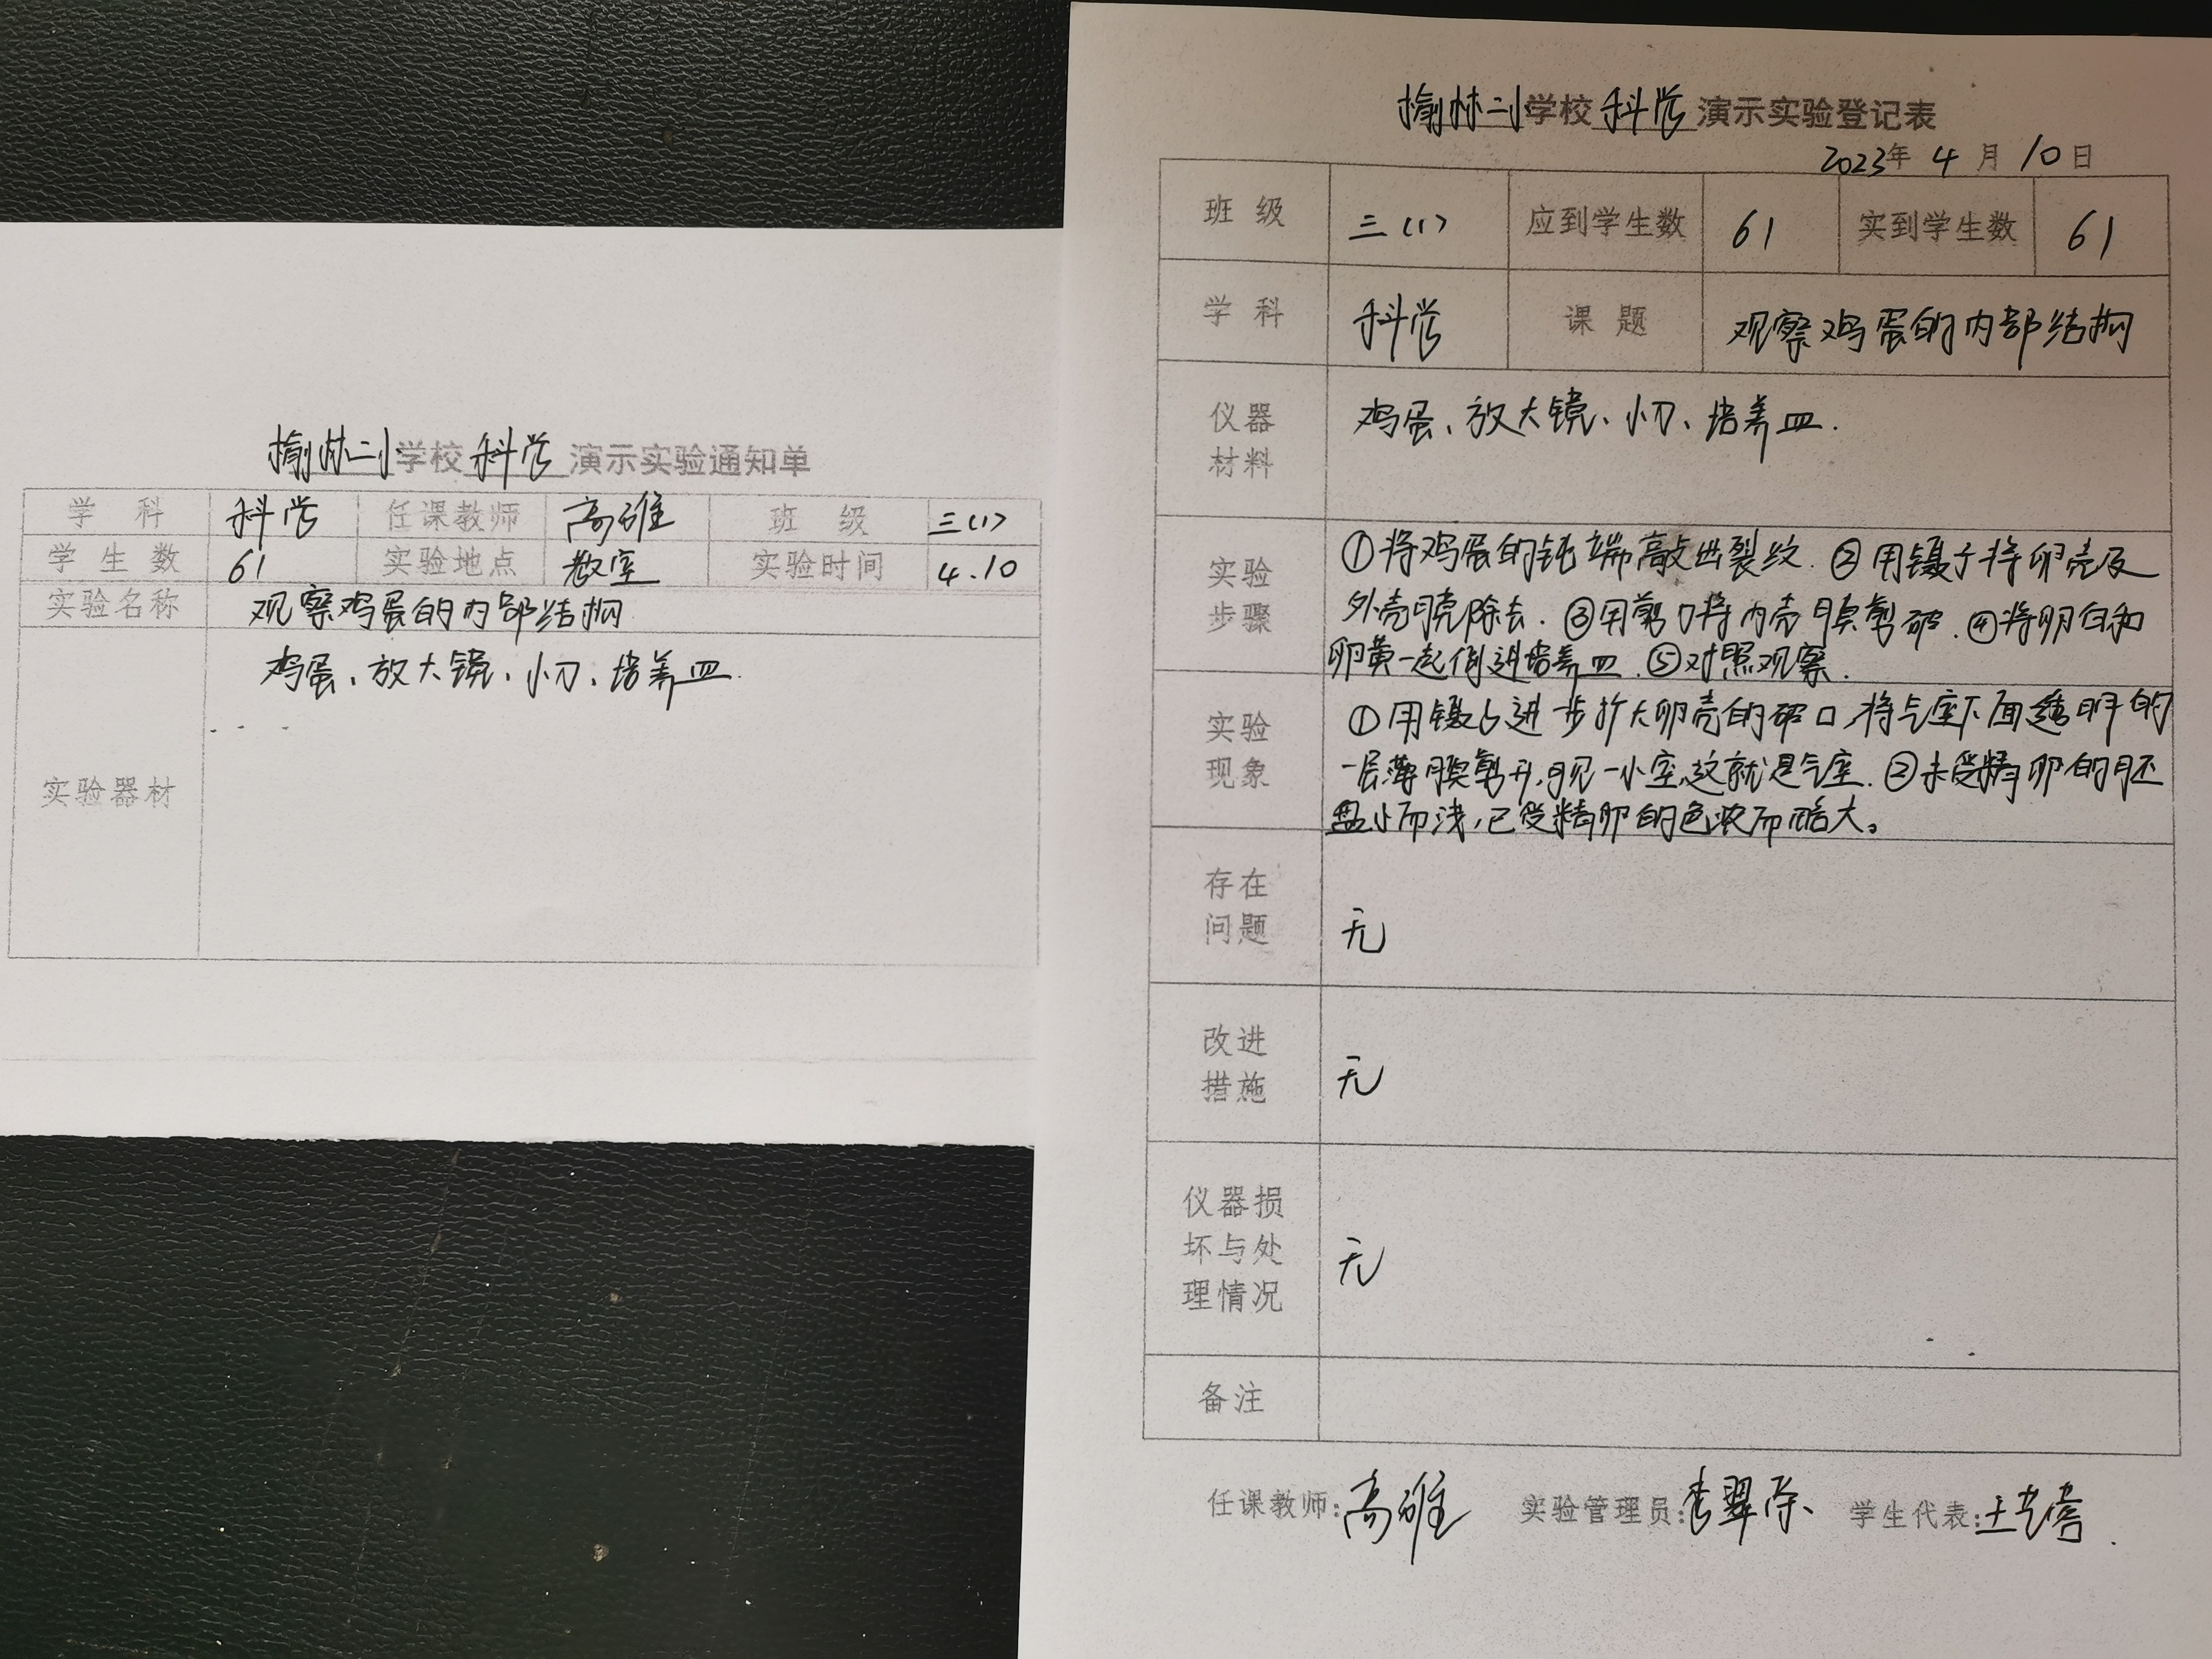 榆林二小学校 科学 演示实验通知单
学 科 科学 任课教师 高雄 班 级 三(1)
学 生 数 61 实验地点 教室 实验时间 4.10
实验名称 观察鸡蛋的内部结构
鸡蛋、放大镜、小刀、培养皿.
实验器材
榆林二小学校 科学 演示实验登记表
2023年 4 月 10 日
班 级 三(1) 应到学生数 61 实到学生数 61
学 科 科学 课 题 观察鸡蛋的内部结构
仪器
材料
鸡蛋、放大镜、小刀、培养皿.
实验
步骤
①将鸡蛋的钝端敲出裂纹.②用镊子将卵壳及
外壳膜除去.③用剪刀将内壳膜剪破.④将卵白和
卵黄一起倒进培养皿.⑤对照观察.
实验
现象
①用镊子进一步扩大卵壳的破口,将气室下面透明的
一层薄膜剪开,可见一小室,这就是气室.②未受精卵的胚
盘小而浅,已受精卵的色浓而略大。
存在
问题
无
改进
措施
无
仪器损
坏与处
理情况
无
备注
任课教师:高雄 实验管理员: 学生代表: